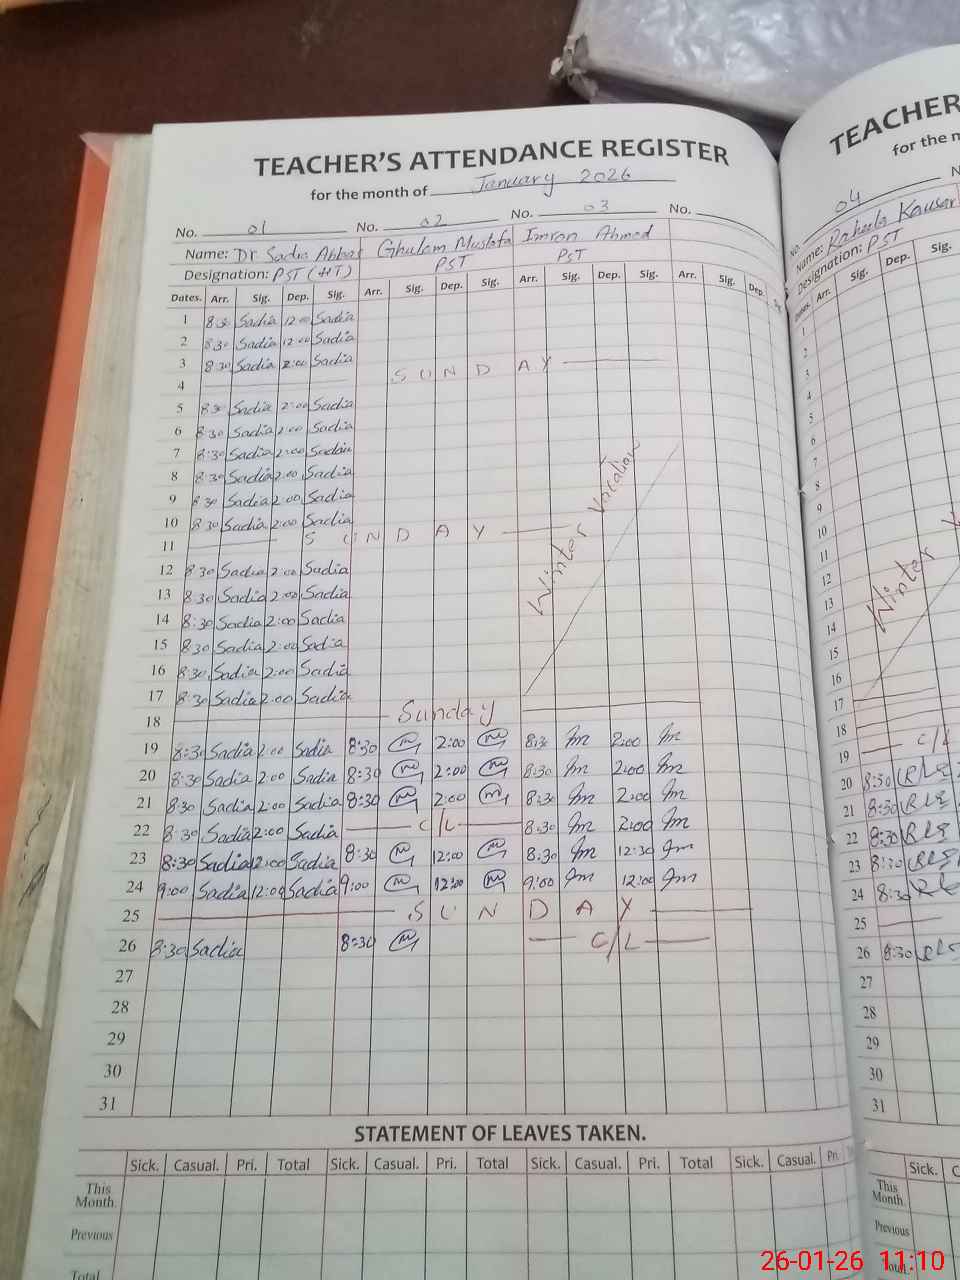 TEACHER'S ATTENDANCE REGISTER
for the month of January 2026
No. 01 No. 02 No. 03 No.
Name: Dr Sadia Abbas Ghulam Mustafa Imran Ahmed
Designation: PST (HT) PST PST
Dates. Arr. Sig. Dep. Sig. Arr. Sig. Dep. Sig. Arr. Sig. Dep. Sig. Arr. Sig. Dep. Sig.
1 8:30 Sadia 12:00 Sadia
2 8:30 Sadia 12:00 Sadia
3 8:30 Sadia 2:00 Sadia
4 SUNDAY
5 8:30 Sadia 2:00 Sadia
6 8:30 Sadia 2:00 Sadia
7 8:30 Sadia 2:00 Sadia
8 8:30 Sadia 2:00 Sadia
9 8:30 Sadia 2:00 Sadia
10 8:30 Sadia 2:00 Sadia
11 SUNDAY
Winter Vacation
12 8:30 Sadia 2:00 Sadia
13 8:30 Sadia 2:00 Sadia
14 8:30 Sadia 2:00 Sadia
15 8:30 Sadia 2:00 Sadia
16 8:30 Sadia 2:00 Sadia
17 8:30 Sadia 2:00 Sadia
18 Sunday
19 8:30 Sadia 2:00 Sadia 8:30 2:00 8:30 2:00
20 8:30 Sadia 2:00 Sadia 8:30 2:00 8:30 2:00
21 8:30 Sadia 2:00 Sadia 8:30 2:00 8:30 2:00
22 8:30 Sadia 2:00 Sadia C/L 8:30 2:00
23 8:30 Sadia 12:00 Sadia 8:30 12:00 8:30 12:30
24 9:00 Sadia 12:00 Sadia 9:00 12:00 9:00 12:00
25 SUNDAY
26 8:30 Sadia 8:30 C/L
27
28
29
30
31
STATEMENT OF LEAVES TAKEN.
Sick. Casual. Pri. Total Sick. Casual. Pri. Total Sick. Casual. Pri. Total Sick. Casual. Pri.
This Month.
Previous
Total
TEACHER
for the
04
No.
Name: Raheela Kausar
Designation: PST
Dates. Arr. Sig. Dep. Sig.
1
2
3
4
5
6
7
8
9
10
11
12
13
14
15
16
17
Winter
18
19 C/L
20 8:30
21 8:30
22 8:30
23 8:30
24 8:30
25
26 8:30
27
28
29
30
31
Sick.
This Month.
Previous
Total.
26-01-26 11:10